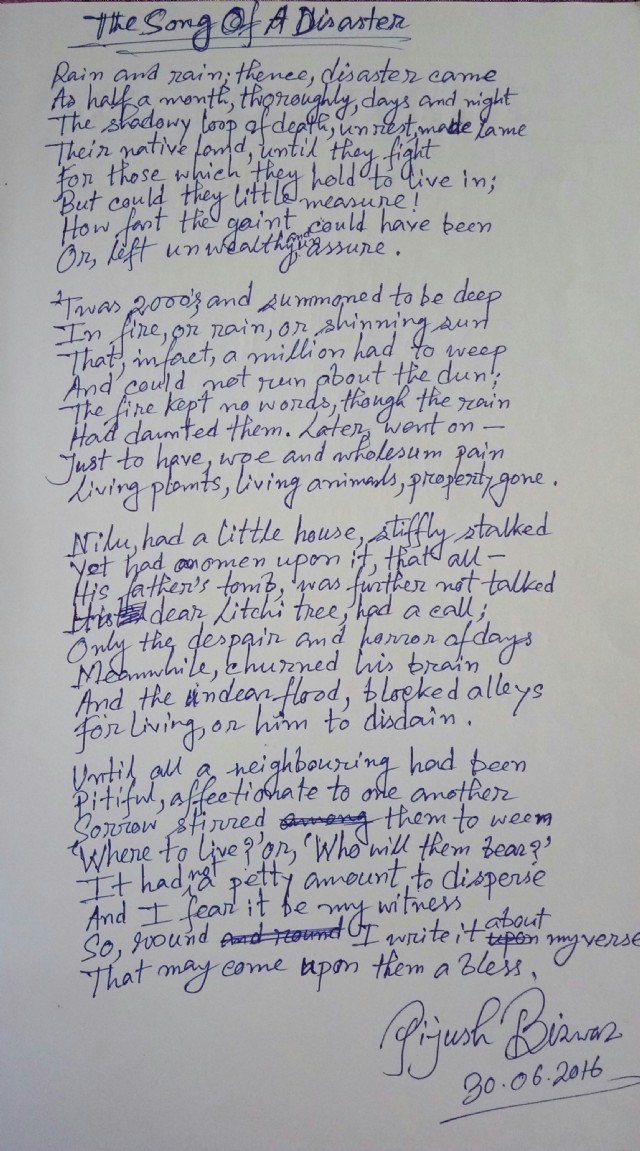 The Song Of A Disaster
Rain and rain; thence, disaster came
As half a month, thoroughly, days and night
The shadowy loop of death, unrest, made lame
Their native land, until they fight
For those which they hold to live in;
But could they little measure!
How fast the gaint could have been
Or, left unwealthy, and unassure.
'Twas 2000's, and summoned to be deep
In fire, or rain, or shinning sun
That, infact, a million had to weep
And could not run about the dun;
The fire kept no words, though the rain
Had daunted them. Later, went on —
Just to have, woe and wholesum pain
Living plants, living animals, property gone.
Nilu, had a little house, stiffly stalked
Yet had an omen upon it, that all —
His father's tomb, was further not talked
His dear Litchi tree, had a call;
Only the despair and horror of days
Meanwhile, churned his brain
And the undear flood, blocked alleys
For living, or him to disdain.
Until all a neighbouring had been
Pitiful, affectionate to one another
Sorrow stirred among them to weem
'Where to live?' or, 'Who will them bear?'
It had not a petty amount to disperse
And I fear it be my witness
So, round and round I write it upon about my verse
That may come upon them a bless.
Pijush Biswas
30.06.2016